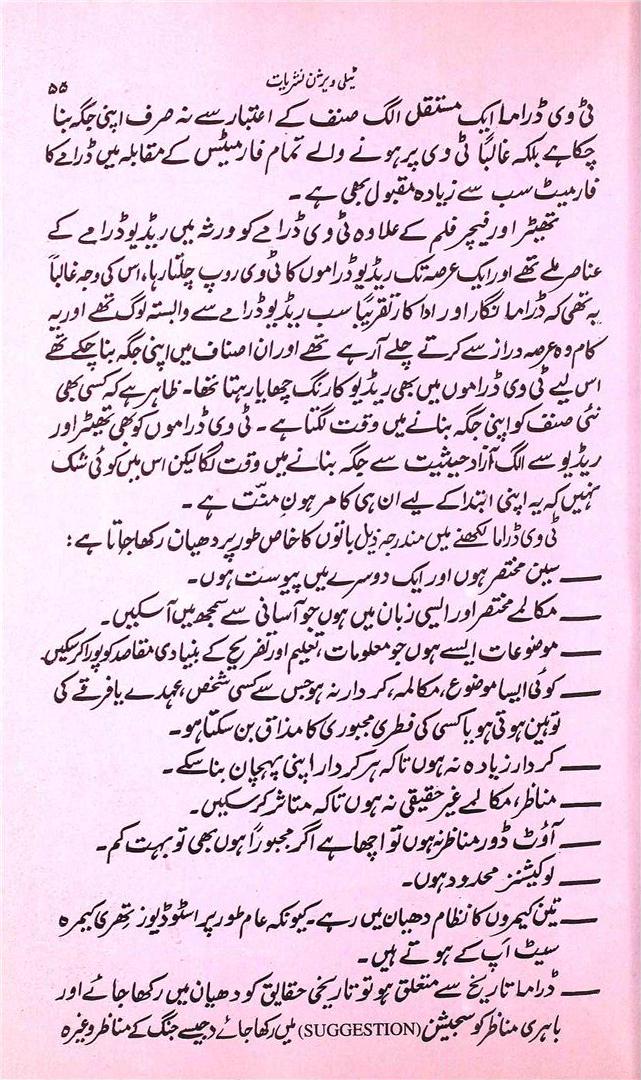 ٹیلی ویژن نشریات
۵۵
ٹی وی ڈراما ایک مستقل الگ صنف کے اعتبار سے نہ صرف اپنی جگہ بنا
چکا ہے بلکہ غالباً ٹی وی پر ہونے والے تمام فارمیٹس کے مقابلہ میں ڈرامے کا
فارمیٹ سب سے زیادہ مقبول بھی ہے۔
تھیٹر اور فیچر فلم کے علاوہ ٹی وی ڈرامے کو ورثہ میں ریڈیو ڈرامے کے
عناصر ملے تھے اور ایک عرصہ تک ریڈیو ڈراموں کا ٹی وی روپ چلتا رہا، اس کی وجہ غالباً
یہ تھی کہ ڈراما نگار اور اداکار تقریباً سب ریڈیو ڈرامے سے وابستہ لوگ تھے اور یہ
کام وہ عرصہ دراز سے کرتے چلے آرہے تھے اور ان اصناف میں اپنی جگہ بنا چکے تھے
اس لیے ٹی وی ڈراموں میں بھی ریڈیو کا رنگ چھایا رہتا تھا۔ ظاہر ہے کہ کسی بھی
نئی صنف کو اپنی جگہ بنانے میں وقت لگتا ہے۔ ٹی وی ڈراموں کو بھی تھیٹر اور
ریڈیو سے الگ آزاد حیثیت سے جگہ بنانے میں وقت لگا لیکن اس میں کوئی شک
نہیں کہ یہ اپنی ابتدا کے لیے ان ہی کا مرہونِ منّت ہے۔
ٹی وی ڈراما لکھنے میں مندرجہ ذیل باتوں کا خاص طور پر دھیان رکھا جاتا ہے:
— سین مختصر ہوں اور ایک دوسرے میں پیوست ہوں۔
— مکالمے مختصر اور ایسی زبان میں ہوں جو آسانی سے سمجھ میں آسکیں۔
— موضوعات ایسے ہوں جو معلومات، تعلیم اور تفریح کے بنیادی مقاصد کو پورا کرسکیں
— کوئی ایسا موضوع، مکالمہ، کردار نہ ہو جس سے کسی شخص، عہدے یا فرقے کی
توہین ہوتی ہو یا کسی کی فطری مجبوری کا مذاق بن سکتا ہو۔
— کردار زیادہ نہ ہوں تاکہ ہر کردار اپنی پہچان بنا سکے۔
— مناظر، مکالمے غیر حقیقی نہ ہوں تاکہ متاثر کرسکیں۔
— آؤٹ ڈور مناظر نہ ہوں تو اچھا ہے اگر مجبوراً ہوں بھی تو بہت کم۔
— لوکیشنز محدود ہوں۔
— تین کیمروں کا نظام دھیان میں رہے۔ کیونکہ عام طور پر اسٹوڈیوز تھری کیمرہ
سیٹ اَپ کے ہوتے ہیں۔
— ڈراما تاریخ سے متعلق ہو تو تاریخی حقایق کو دھیان میں رکھا جائے اور
باہری مناظر کو سجیشن (SUGGESTION) میں رکھا جائے (جیسے جنگ کے مناظر وغیرہ